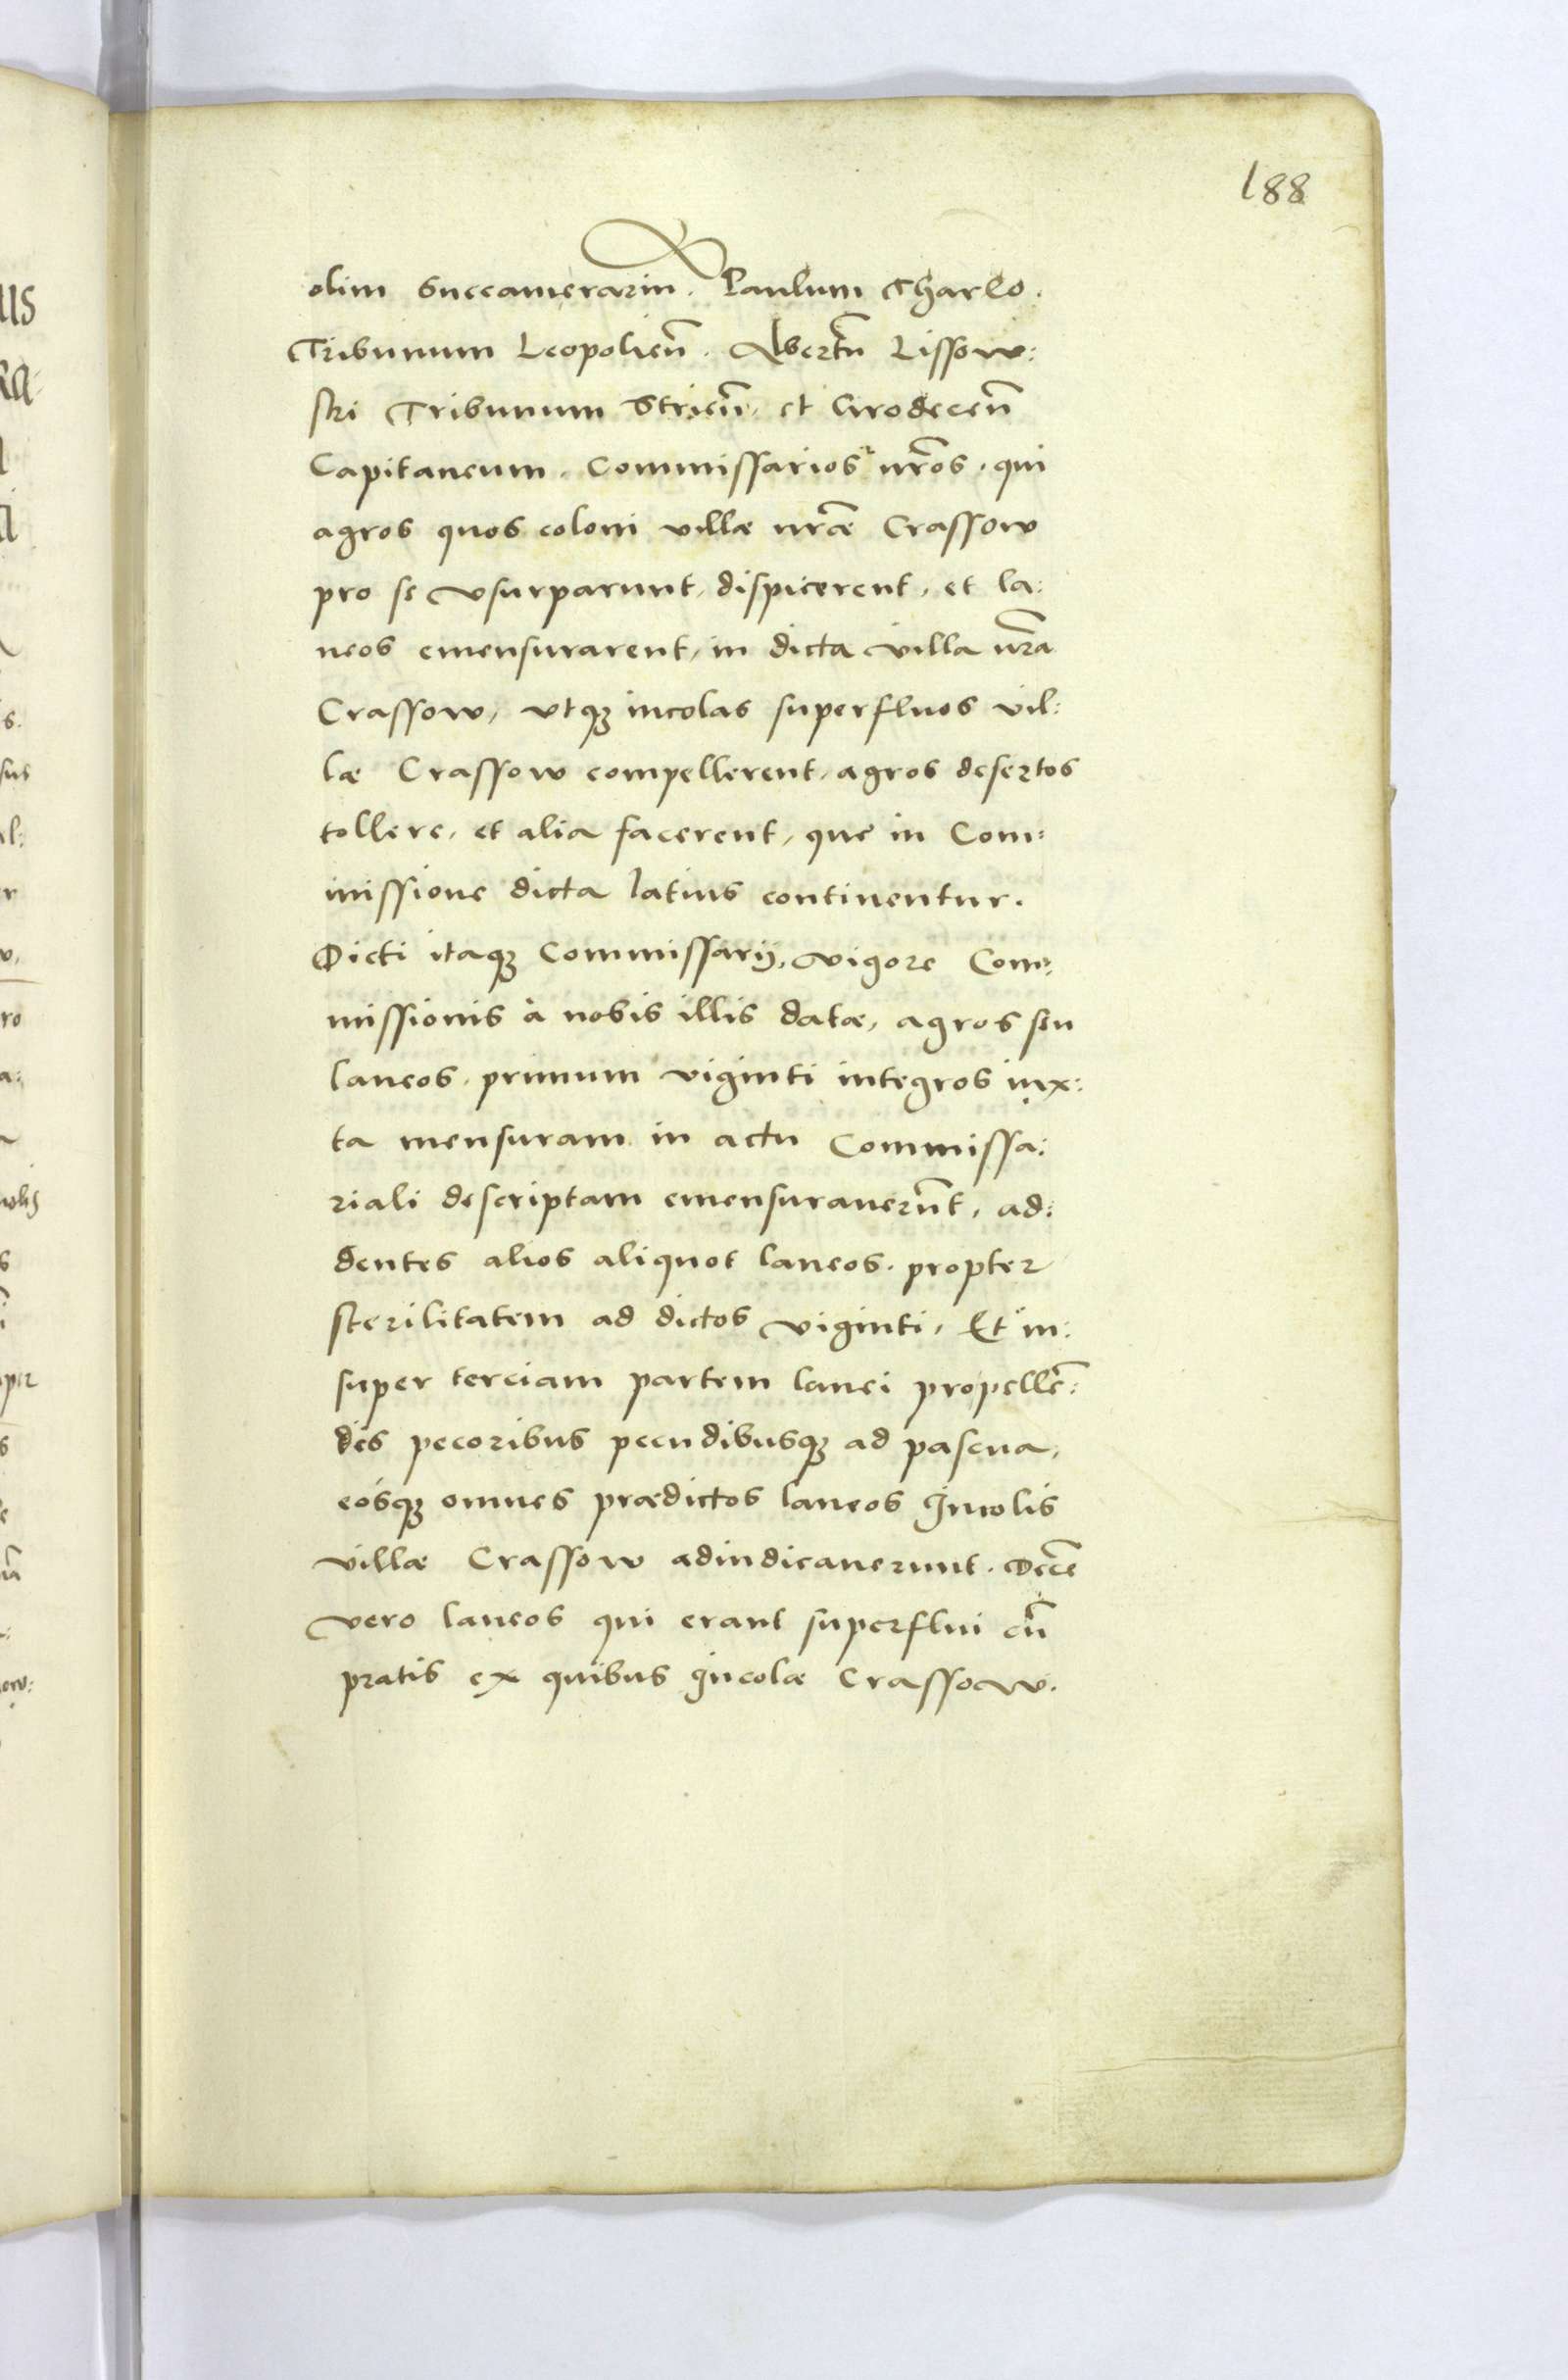 188
olim Succamerariū. Paulum Tharlo.
Tribunum Leopolieñ. Albertū Lissow:
ski Tribunum Strieñ, et Grodeceñ
Capitaneum. Commissarios nr̃os. qui
agros quos coloni villæ nr̃æ Crassow
pro se vsurparunt, dispicerent, et la:
neos emensurarent, in dicta villa nr̃a
Crassow, vtqȝ incolas superfluos vil:
læ Crassow compellerent, agros desertos
tollere, et alia facerent, que in Com:
missione dicta latius continentur.
Dicti itaqȝ Commissarij, vigore Com:
missionis à nobis illis datæ, agros seu
laneos primum viginti integros iux:
ta mensuram in actu Commissa:
riali descriptam emensurauerūt, ad:
dentes alios aliquot laneos. propter
sterilitatem ad dictos viginti, Et in:
super terciam partem lanei propellē:
dis pecoribus pecudibusqȝ ad pascua,
eosqȝ omnes prædictos laneos Incolis
villæ Crassow adiudicauerunt. Decē
vero laneos qui erant superflui cū
pratis ex quibus Incolæ Crassow.